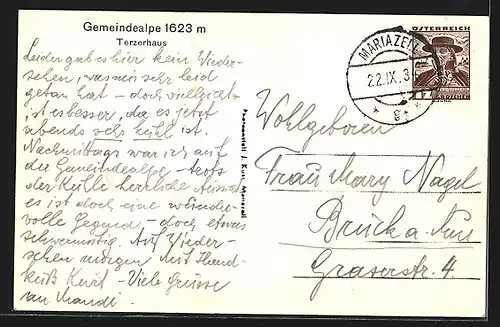 Gemeindealpe 1623 m
Terzerhaus
Leider gab es hier kein Wieder-
sehen, was mir sehr leid
getan hat – doch vielleicht
ist es besser, da es jetzt
abends sehr kühl ist.
Nachmittags war ich auf
der Gemeindealpe – trotz
der Kälte herrliche Aussicht
es ist doch eine wunder-
volle Gegend – doch etwas
schwermütig. Auf Wieder-
sehen morgen mit Hand-
kuß Kurt – Viele Grüsse
an Mandi.
Photoanstalt J. Kuss, Mariazell
MARIAZELL
22.IX.3
ÖSTERREICH
Wohlgeboren
Frau Mary Nagel
Bruck a. Mur
Grazerstr. 4